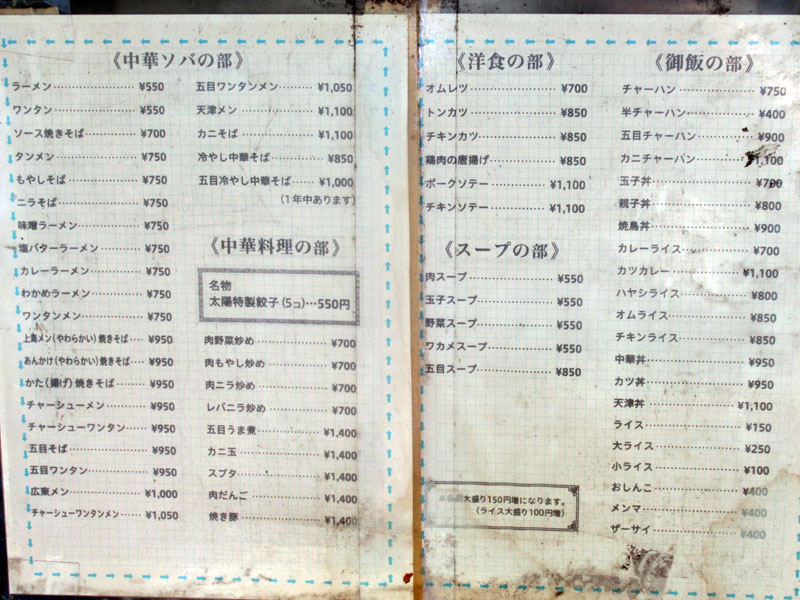 《中華ソバの部》
ラーメン…………¥550
ワンタン…………¥550
ソース焼きそば…………¥700
タンメン…………¥750
もやしそば…………¥750
ニラそば…………¥750
味噌ラーメン…………¥750
塩バターラーメン…………¥750
カレーラーメン…………¥750
わかめラーメン…………¥750
ワンタンメン…………¥750
上海メン(やわらかい)焼きそば…¥950
あんかけ(やわらかい)焼きそば…¥950
かた(揚げ)焼きそば…………¥950
チャーシューメン…………¥950
チャーシューワンタン…………¥950
五目そば…………¥950
五目ワンタン…………¥950
広東メン…………¥1,000
チャーシューワンタンメン……¥1,050
五目ワンタンメン…………¥1,050
天津メン…………¥1,100
カニそば…………¥1,100
冷やし中華そば…………¥850
五目冷やし中華そば…………¥1,000
(1年中あります)
《中華料理の部》
名物
太陽特製餃子(5コ)…550円
肉野菜炒め…………¥700
肉もやし炒め…………¥700
肉ニラ炒め…………¥700
レバニラ炒め…………¥700
五目うま煮…………¥1,400
カニ玉…………¥1,400
スブタ…………¥1,400
肉だんご…………¥1,400
焼き豚…………¥1,400
《洋食の部》
オムレツ…………¥700
トンカツ…………¥850
チキンカツ…………¥850
鶏肉の唐揚げ…………¥850
ポークソテー…………¥1,100
チキンソテー…………¥1,100
《スープの部》
肉スープ…………¥550
玉子スープ…………¥550
野菜スープ…………¥550
ワカメスープ…………¥550
五目スープ…………¥850
大盛り150円増になります。
(ライス大盛り100円増)
《御飯の部》
チャーハン…………¥750
半チャーハン…………¥400
五目チャーハン…………¥900
カニチャーハン…………¥1,100
玉子丼…………¥700
親子丼…………¥800
焼鳥丼…………¥900
カレーライス…………¥700
カツカレー…………¥1,100
ハヤシライス…………¥800
オムライス…………¥850
チキンライス…………¥850
中華丼…………¥950
カツ丼…………¥950
天津丼…………¥1,100
ライス…………¥150
大ライス…………¥250
小ライス…………¥100
おしんこ…………¥400
メンマ…………¥400
ザーサイ…………¥400